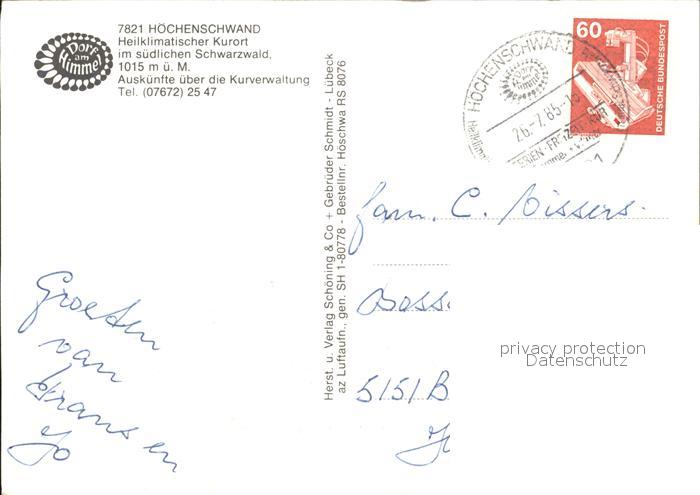 Dorf
am
Himmel
7821 HÖCHENSCHWAND
Heilklimatischer Kurort
im südlichen Schwarzwald,
1015 m ü. M.
Auskünfte über die Kurverwaltung
Tel. (07672) 25 47
Groeten
van
Frans en
Jo
Herst. u. Verlag Schöning & Co + Gebrüder Schmidt - Lübeck
az Luftaufn., gen. SH 1-80778 - Bestellnr. Höschwa RS 8076
HÖCHENSCHWAND
Dorf
am
Himmel
26.-7.85-10
60
DEUTSCHE BUNDESPOST
fam. C. Vissers.
Boss
5151 B
privacy protection
Datenschutz